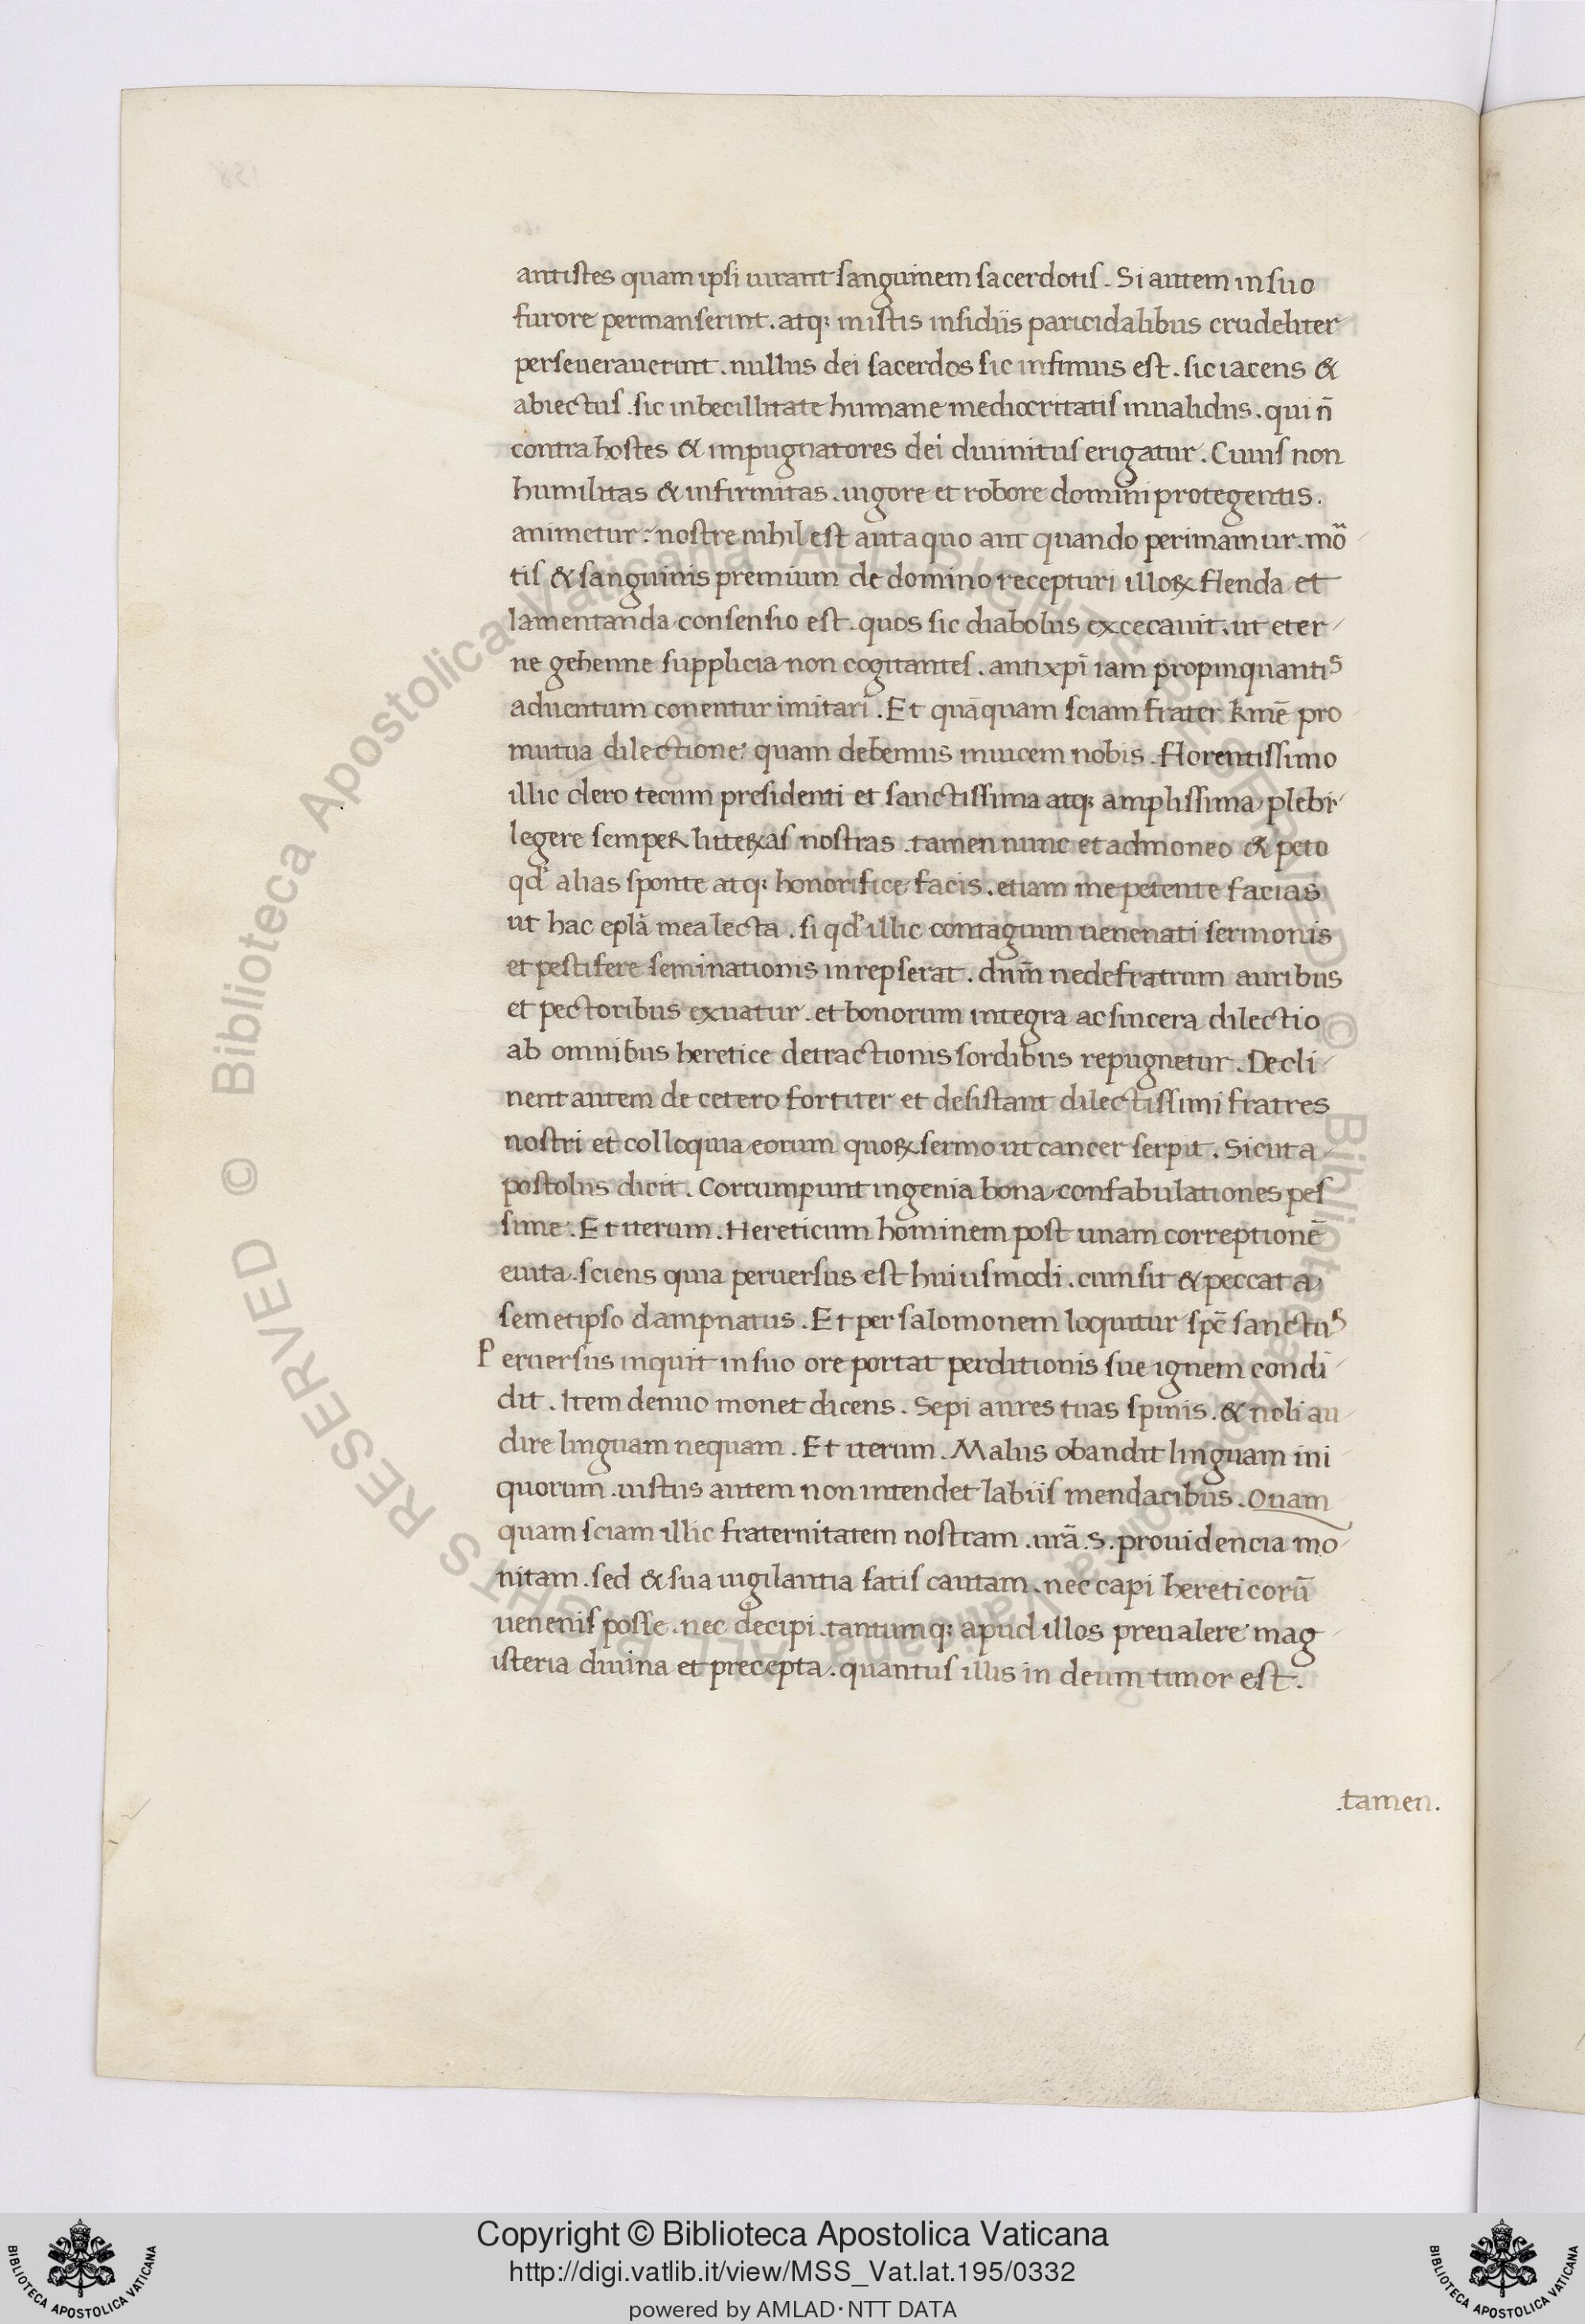 antistes quam ipsi uitant sanguinem sacerdotis. Si autem in suo
furore permanserint. atq; in istis insidiis paricidalibus crudeliter
perseuerauerint. nullus dei sacerdos sic infimus est. sic iacens &
abiectus. sic inbecillitate humane mediocritatis inualidus. qui n̄
contra hostes & impugnatores dei diuinitus erigatur. Cuius non
humilitas & infirmitas. uigore et robore domini protegentis.
animetur. nostre nihil est aut a quo aut quando perimamur. mo
tis & sanguinis premium de domino recepturi illoꝝ flenda et
lamentanda consensio est. quos sic diabolus excecauit. ut eter
ne gehenne supplicia non cogitantes. antixp̄i iam propinquantis
aduentum conentur imitari. Et quāquam sciam frater kmē pro
mutua dilectione: quam debemus inuicem nobis. florentissimo
illic clero tecum presidenti et sanctissima atq; amplissima plebi
legere semper litteras nostras. tamen nunc et admoneo & peto
qd' alias sponte atq; honorifice facis. etiam me petente facias
ut hac eplā mea lecta. si qd' illic contagium uenenati sermonis
et pestifere seminationis inrepserat. dnm̄ nedefratrum auribus
et pectoribus exuatur. et bonorum integra ac sincera dilectio
ab omnibus heretice detractionis sordibus repugnetur. Decli
nent autem de cetero fortiter et desistant dilectissimi fratres
nostri et colloquia eorum quoꝝ sermo ut cancer serpit. Sicut a
postolus dicit. Corrumpunt ingenia bona confabulationes pes
sime: Et iterum. Hereticum hominem post unam correptionē
euita. sciens quia peruersus est huiusmodi. cum sit & peccat a
semetipso dampnatus. Et per salomonem loquitur spc̄ sanctus
Peruersus inquit in suo ore portat perditionis sue ignem condi
dit. Item denuo monet dicens. Sepi aures tuas spinis. & noli au
dire linguam nequam. Et iterum. Malus obaudit linguam ini
quorum. iustus autem non intendet labiis mendacibus. Quam
quam sciam illic fraternitatem nostram. urā .s. prouidencia mo
nitam. sed & sua uigilantia satis cautam. nec capi hereticorū
uenenis posse. nec decipi. tantumq; apud illos preualere mag
isteria diuina et precepta. quantus illis in deum timor est.
.tamen.
© Biblioteca Apostolica Vaticana ALL RIGHTS RESERVED
Copyright © Biblioteca Apostolica Vaticana
http://digi.vatlib.it/view/MSS_Vat.lat.195/0332
powered by AMLAD·NTT DATA
BIBLIOTECA APOSTOLICA VATICANA
BIBLIOTECA APOSTOLICA VATICANA